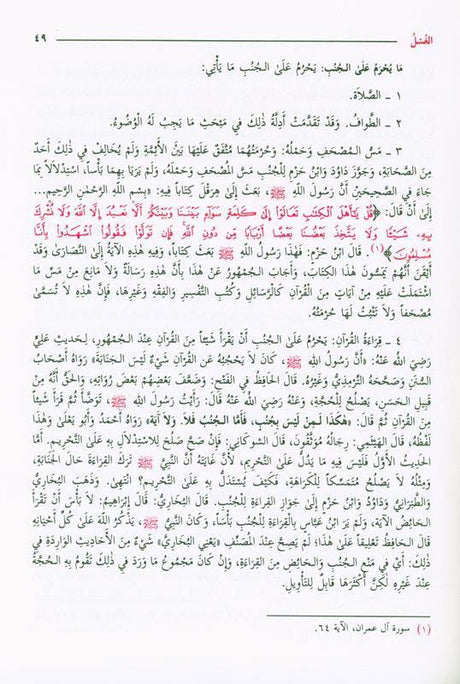 الغُسْلُ ٤٩
مَا يُحْرَمُ عَلَىٰ الـجُنُبِ: يَحْرُمُ عَلَىٰ الـجُنُبِ مَا يَأْتِي:
١ ـ الصَّلاَة.
٢ ـ الطَّواف. وَقَدْ تَقَدَّمَتْ أَدِلَّةُ ذٰلِكَ فِي مَبْحَثِ مَا يَجِبُ لَهُ الْوُضُوءُ.
٣ ـ مَسُّ المُصْحَفِ وَحَمْلُهُ: وَحُرْمَتُهُمَا مُتَّفَقٌ عَلَيْهَا بَيْنَ الأَئِمَّةِ وَلَمْ يُخَالِفْ فِي ذٰلِكَ أَحَدٌ
مِنَ الصَّحَابَةِ، وَجَوَّزَ دَاوُدُ وَابْنُ حَزْمٍ لِلْجُنُبِ مَسَّ المُصْحَفِ وَحَمْلَهُ، وَلَمْ يَرَيَا بِهِمَا بَأْساً، اسْتِدْلاَلاً بِمَا
جَاءَ فِي الصَّحِيحَيْنِ أَنَّ رَسُولَ اللَّهِ ﷺ، بَعَثَ إِلَىٰ هِرَقْلَ كِتَاباً فِيهِ: «بِسْمِ اللَّهِ الرَّحْمٰنِ الرَّحِيمِ...
إِلَىٰ أَنْ قَالَ: ﴿قُلْ يَٰٓأَهْلَ ٱلْكِتَٰبِ تَعَالَوْا۟ إِلَىٰ كَلِمَةٍ سَوَآءٍۭ بَيْنَنَا وَبَيْنَكُمْ أَلَّا نَعْبُدَ إِلَّا ٱللَّهَ وَلَا نُشْرِكَ
بِهِۦ شَيْـًٔا وَلَا يَتَّخِذَ بَعْضُنَا بَعْضًا أَرْبَابًا مِّن دُونِ ٱللَّهِ فَإِن تَوَلَّوْا۟ فَقُولُوا۟ ٱشْهَدُوا۟ بِأَنَّا
مُسْلِمُونَ﴾(١). قَالَ ابْنُ حَزْمٍ: فَهٰذَا رَسُولُ اللَّهِ ﷺ بَعَثَ كِتَاباً، وَفِيهِ هٰذِهِ الآيَةُ إِلَىٰ النَّصَارَىٰ، وَقَدْ
أَيْقَنَ أَنَّهُمْ يَمَسُّونَ هٰذَا الكِتَابَ، وَأَجَابَ الجُمْهُورُ عَنْ هٰذَا بِأَنَّ هٰذِهِ رِسَالَةٌ وَلاَ مَانِعَ مِنْ مَسِّ مَا
اشْتَمَلَتْ عَلَيْهِ مِنْ آيَاتٍ مِنَ الْقُرْآنِ كَالرَّسَائِلِ وَكُتُبِ التَّفْسِيرِ وَالفِقْهِ وَغَيْرِهَا، فَإِنَّ هٰذِهِ لاَ تُسَمَّىٰ
مُصْحَفاً وَلاَ تَثْبُتُ لَهَا حُرْمَتُهُ.
٤ ـ قِرَاءَةُ القُرْآنِ: يَحْرُمُ عَلَىٰ الجُنُبِ أَنْ يَقْرَأَ شَيْئاً مِنَ القُرْآنِ عِنْدَ الجُمْهُورِ، لِحَدِيثِ عَلِيٍّ
رَضِيَ اللَّهُ عَنْهُ: «أَنَّ رَسُولَ اللَّهِ ﷺ، كَانَ لاَ يَحْجُبُهُ عَنِ القُرْآنِ شَيْءٌ لَيْسَ الجَنَابَةَ» رَوَاهُ أَصْحَابُ
السُّنَنِ وَصَحَّحَهُ التِّرْمِذِيُّ وَغَيْرُهُ. قَالَ الحَافِظُ فِي الفَتْحِ: وَضَعَّفَ بَعْضُهُمْ بَعْضَ رُوَاتِهِ، وَالحَقُّ أَنَّهُ مِنْ
قَبِيلِ الحَسَنِ، يَصْلُحُ لِلْحُجَّةِ، وَعَنْهُ رَضِيَ اللَّهُ عَنْهُ قَالَ: رَأَيْتُ رَسُولَ اللَّهِ ﷺ، تَوَضَّأَ ثُمَّ قَرَأَ شَيْئاً
مِنَ القُرْآنِ ثُمَّ قَالَ: «هٰكَذَا لِمَنْ لَيْسَ بِجُنُبٍ، فَأَمَّا الجُنُبُ فَلاَ. وَلاَ آيَةَ» رَوَاهُ أَحْمَدُ وَأَبُو يَعْلَىٰ وَهٰذَا
لَفْظُهُ، قَالَ الهَيْثَمِي: رِجَالُهُ مُوَثَّقُونَ، قَالَ الشوكَانِي: فَإِنْ صَحَّ صَلَحَ لِلاسْتِدْلاَلِ بِهِ عَلَىٰ التَّحْرِيمِ. أَمَّا
الحَدِيثُ الأَوَّلُ فَلَيْسَ فِيهِ مَا يَدُلُّ عَلَىٰ التَّحْرِيمِ، لأَنَّ غَايَتَهُ أَنَّ النَّبِيَّ ﷺ تَرَكَ القِرَاءَةَ حَالَ الجَنَابَةِ،
وَمِثْلُهُ لاَ يَصْلُحُ مُتَمَسَّكاً لِلْكَرَاهَةِ، فَكَيْفَ يُسْتَدَلُّ بِهِ عَلَىٰ التَّحْرِيمِ؟ انْتَهىٰ. وَذَهَبَ البُخَارِيُّ
وَالطَّبَرَانِيُّ وَدَاوُدُ وَابْنُ حَزْمٍ إِلَىٰ جَوَازِ القِرَاءَةِ لِلْجُنُبِ. قَالَ البُخَارِيُّ: قَالَ إِبْرَاهِيمُ: لاَ بَأْسَ أَنْ تَقْرَأَ
الحَائِضُ الآيَةَ، وَلَمْ يَرَ ابْنُ عَبَّاسٍ بِالقِرَاءَةِ لِلْجُنُبِ بَأْساً، وَكَانَ النَّبِيُّ ﷺ، يَذْكُرُ اللَّهَ عَلَىٰ كُلِّ أَحْيَانِهِ
قَالَ الحَافِظُ تَعْلِيقاً عَلَىٰ هٰذَا: لَمْ يَصِحَّ عِنْدَ المُصَنِّفِ «يَعْنِي البُخَارِيَّ» شَيْءٌ مِنَ الأَحَادِيثِ الوَارِدَةِ فِي
ذٰلِكَ: أَيْ فِي مَنْعِ الجُنُبِ وَالحَائِضِ مِنَ القِرَاءَةِ، وَإِنْ كَانَ مَجْمُوعُ مَا وَرَدَ فِي ذٰلِكَ تَقُومُ بِهِ الحُجَّةُ
عِنْدَ غَيْرِهِ لَكِنَّ أَكْثَرَهَا قَابِلٌ لِلتَّأْوِيلِ.
(١) سورة آل عمران، الآية ٦٤.